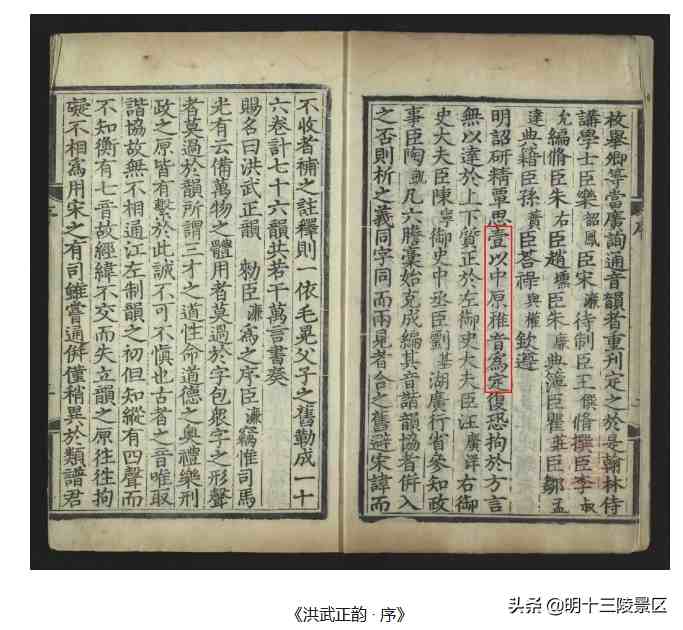 枚舉卿等當廣詢通音韻者重刊定之於是翰林侍
講學士臣樂韶鳳臣宋濂待制臣王僎脩撰臣李叔
允編脩臣朱右臣趙壎臣朱廉典簿臣瞿莊臣鄒孟
達典籍臣孫蕡臣荅禄與權欽遵
明詔研精覃思壹以中原雅音為定復恐拘於方言
無以達於上下質正於左御史大夫臣汪廣洋右御
史大夫臣陳寧御史中丞臣劉基湖廣行省參知政
事臣陶凱凡六謄藁始克成編其音諧韻協者併入
之否則析之義同字同而兩見者合之舊避宋諱而
不收者補之註釋則一依毛晃父子之舊勒成一十
六卷計七十六韻共若干萬言書奏
賜名曰洪武正韻勑臣濂為之序臣濂竊惟司馬
光有云備萬物之體用者莫過於字包衆字之形聲
者莫過於韻所謂三才之道性命道德之奧禮樂刑
政之原皆有繫於此誠不可不慎也古者之音唯取
諧協故無不相通江左制韻之初但知縱有四聲而
不知衡有七音故經緯不交而失立韻之原徃徃拘
礙不相為用宋之有司雖嘗通併僅稍異於類譜君
《洪武正韵·序》
头条 @明十三陵景区